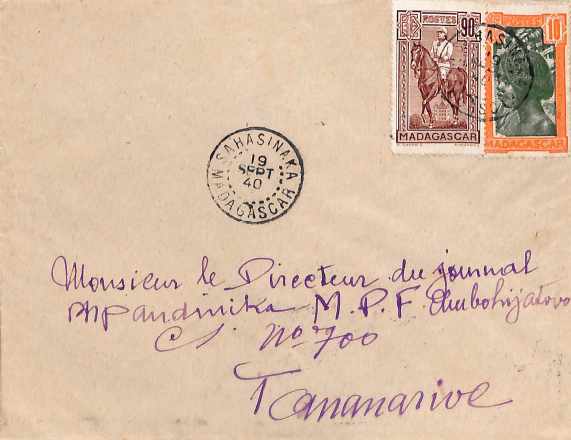 POSTES
90c
MADAGASCAR
POSTES
10c
MADAGASCAR
SAHASINAKA
19
SEPT
40
MADAGASCAR
Monsieur le Directeur du journal
Mpandinika M. P. F.
No 700
Tananarive